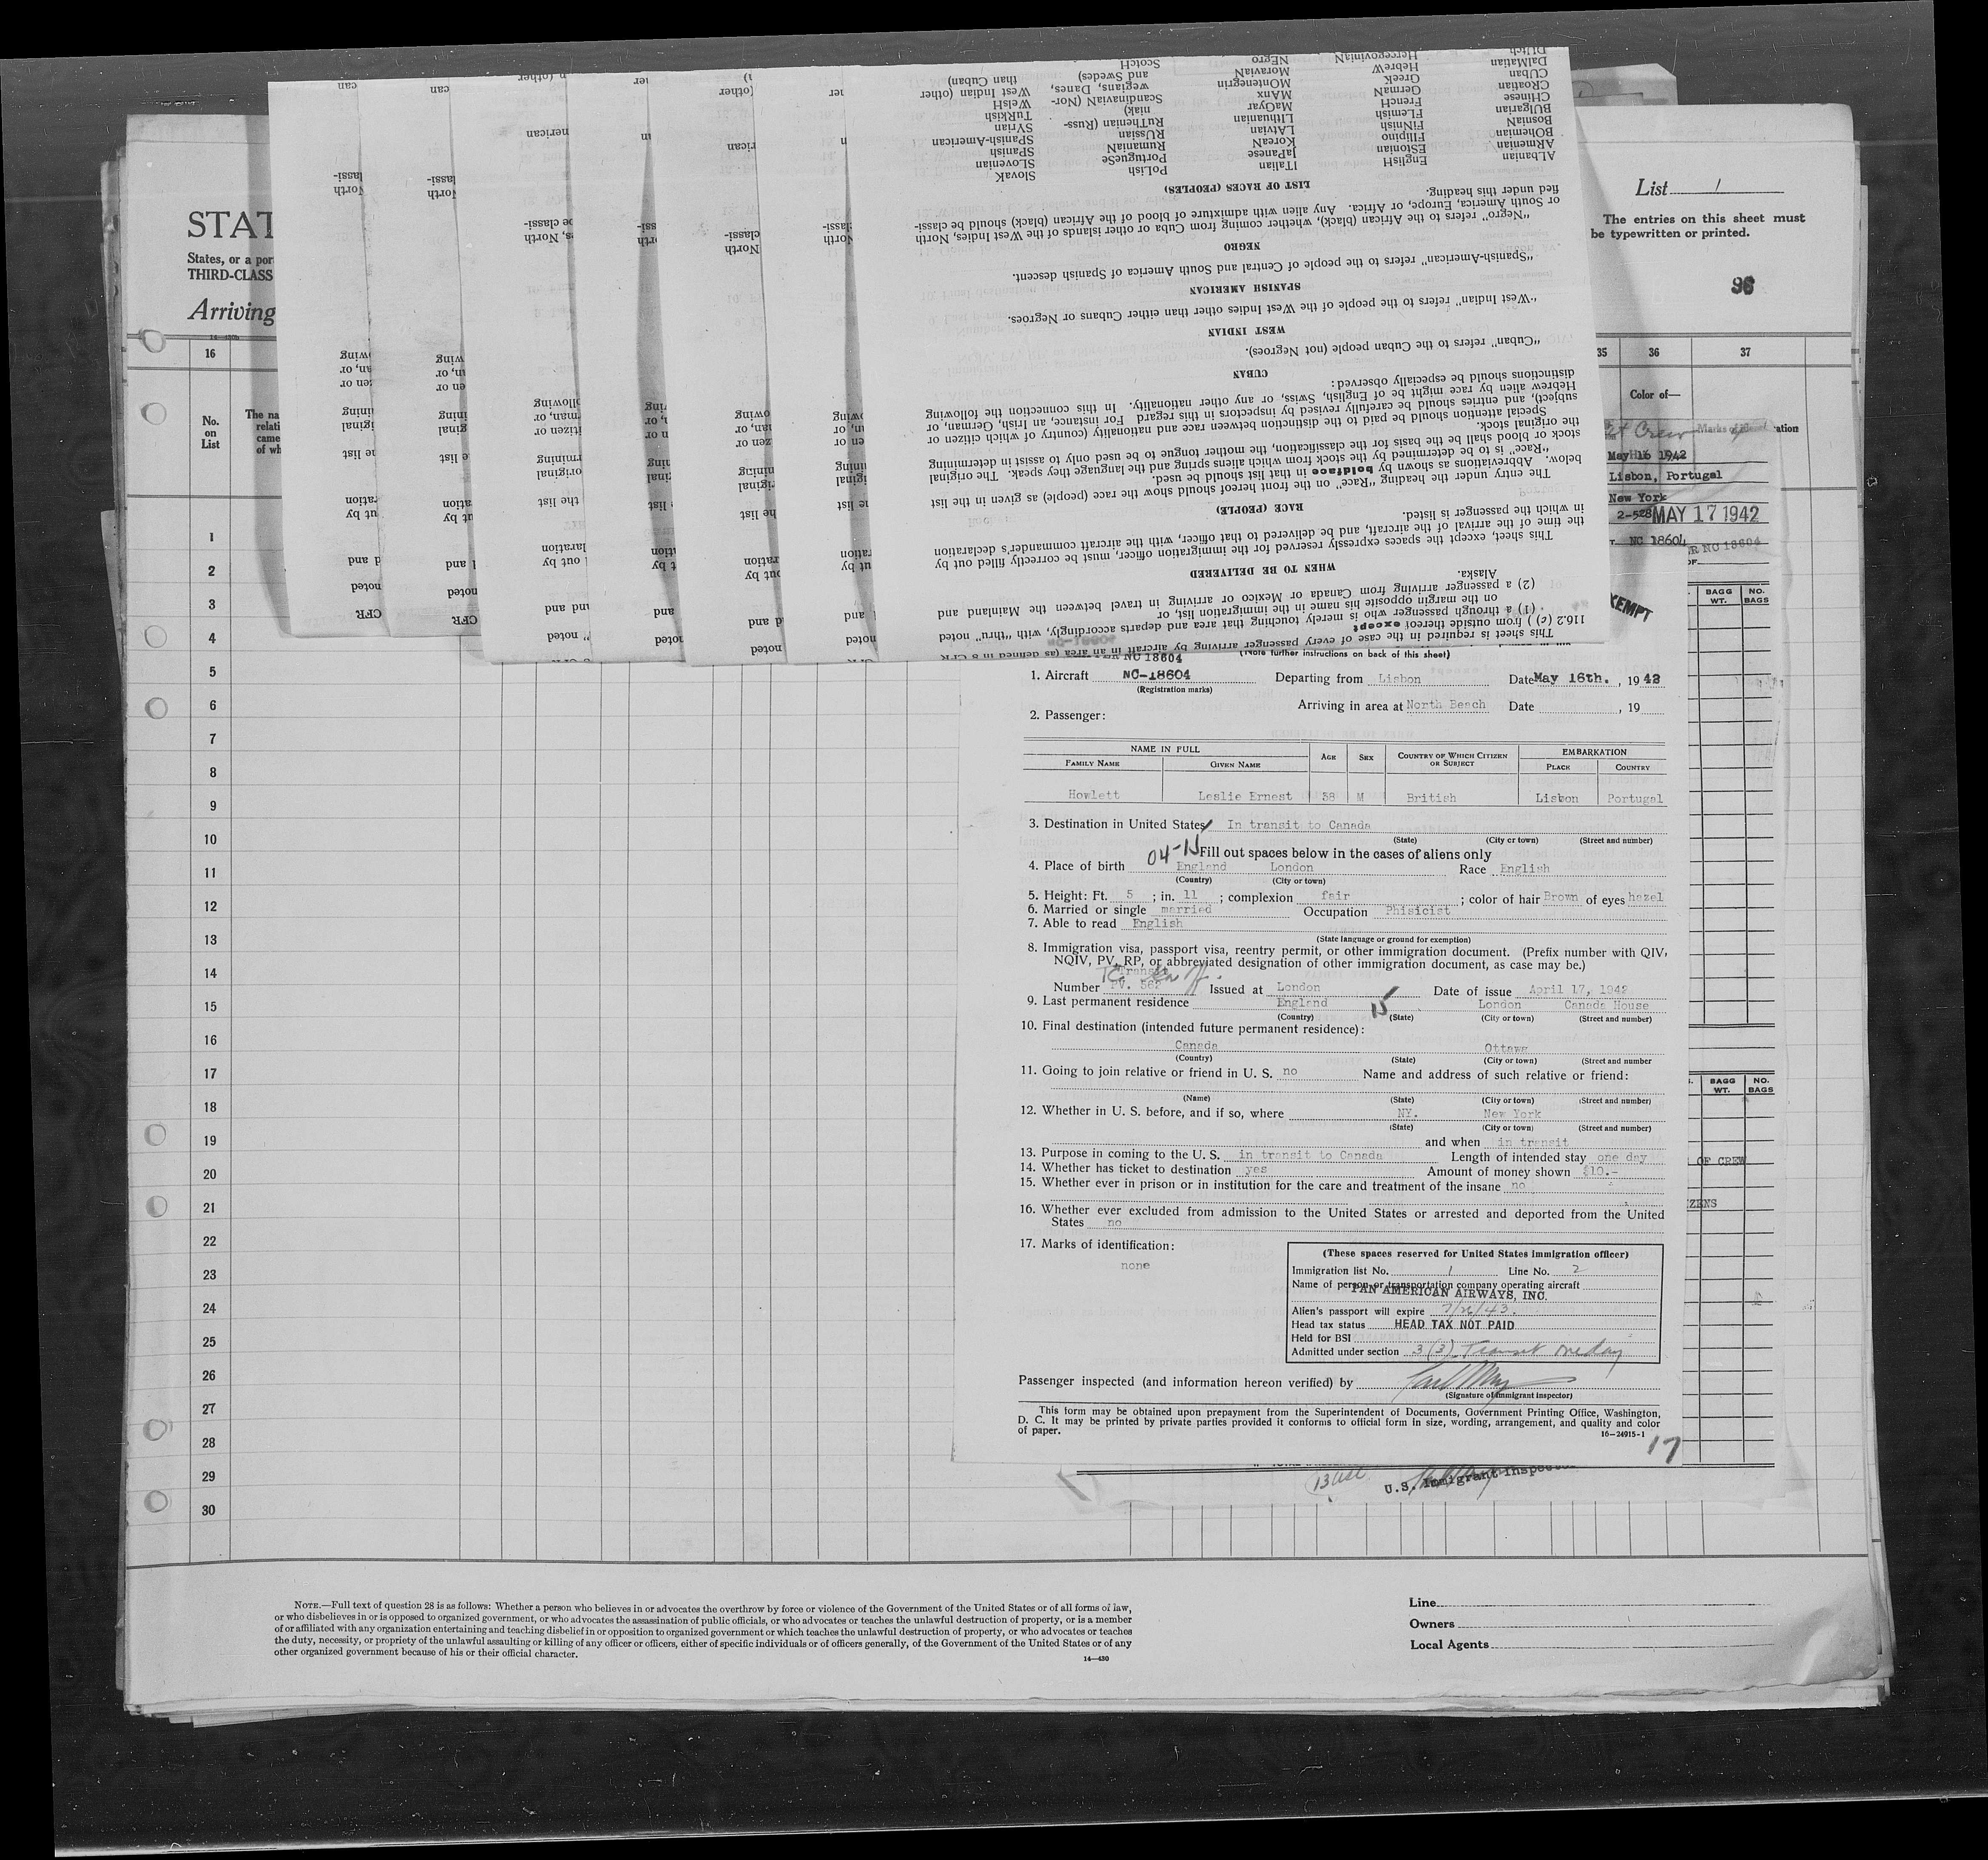 List 1
The entries on this sheet must
be typewritten or printed.
96
STAT
States, or a por
THIRD-CLASS
Arriving
16
35 36 37
No.
on
List
The na
relati
came
of wh
Color of—
Crew
May 16 1942
Lisbon, Portugal
New York
2-528 MAY 17 1942
NC 18604
EMPT
BAGG WT. NO. BAGS
1
2
3
4
5
6
7
8
9
10
11
12
13
14
15
16
17
18
19
20
21
22
23
24
25
26
27
28
29
30
This sheet is required in the case of every passenger arriving by aircraft in an area (as defined in 8 CFR
116.2 (c)) from outside thereof except
(1) a through passenger who is merely touching that area and departs accordingly, with "thru" noted
on the margin opposite his name in the immigration list, or
(2) a passenger arriving from Canada or Mexico or arriving in travel between the Mainland and
Alaska.
WHEN TO BE DELIVERED
This sheet, except the spaces expressly reserved for the immigration officer, must be correctly filled out by
the time of the arrival of the aircraft, and be delivered to that officer, with the aircraft commander's declaration
in which the passenger is listed.
RACE (PEOPLE)
The entry under the heading "Race" on the front hereof should show the race (people) as given in the list
below. Abbreviations as shown by boldface in that list should be used.
"Race" is to be determined by the stock from which aliens spring and the language they speak. The original
stock or blood shall be the basis for the classification, the mother tongue to be used only to assist in determining
the original stock.
Special attention should be paid to the distinction between race and nationality (country of which citizen or
subject), and entries should be carefully revised by inspectors in this regard For instance, an Irish, German, or
Hebrew alien by race might be of English, Swiss, or any other nationality. In this connection the following
distinctions should be especially observed:
CUBAN
"Cuban" refers to the Cuban people (not Negroes).
WEST INDIAN
"West Indian" refers to the people of the West Indies other than either Cubans or Negroes.
SPANISH AMERICAN
"Spanish-American" refers to the people of Central and South America of Spanish descent.
NEGRO
"Negro" refers to the African (black), whether coming from Cuba or other islands of the West Indies, North
or South America, Europe, or Africa. Any alien with admixture of blood of the African (black) should be classi-
fied under this heading.
LIST OF RACES (PEOPLES)
ALbanian EnglisH ITalian PoLish SlovaK
ARmenian EStonian JaPanese PortugueSe SLovenian
BOhemian Filipino KoreaN RumaniaN SPanish
BosniaN FiNnish LAtvian RUssian SPanish-American
BUlgarian FLemish LIthuanian RuThenian (Russ- SYrian
CHinese FrencH MaGyar niak) TuRkish
CRoatian GermaN MAnx ScandinaviaN (Nor- WelsH
CUban GreeK MOntenegrin wegians, Danes, West Indian (other
DalMatian HebreW MoraviaN and Swedes) than Cuban)
DUtch HercegoviniaN NEgro ScotcH
NC 18604
(Note further instructions on back of this sheet)
1. Aircraft NC-18604 Departing from Lisbon Date May 16th., 1942
(Registration marks)
Arriving in area at North Beach Date , 19
2. Passenger:
NAME IN FULL AGE SEX COUNTRY OF WHICH CITIZEN OR SUBJECT EMBARKATION
FAMILY NAME GIVEN NAME PLACE COUNTRY
Howlett Leslie Ernest 38 M British Lisbon Portugal
3. Destination in United States In transit to Canada
(State) (City or town) (Street and number)
04-15 Fill out spaces below in the cases of aliens only
4. Place of birth England London Race English
(Country) (City or town)
5. Height: Ft. 5 ; in. 11 ; complexion fair ; color of hair Brown of eyes hazel
6. Married or single married Occupation Phisicist
7. Able to read English
(State language or ground for exemption)
8. Immigration visa, passport visa, reentry permit, or other immigration document. (Prefix number with QIV,
NQIV, PV, RP, or abbreviated designation of other immigration document, as case may be.)
Transit
Number PV. 562 Issued at London Date of issue April 17, 1942
9. Last permanent residence England 15 London Canada House
(Country) (State) (City or town) (Street and number)
10. Final destination (intended future permanent residence):
Canada Ottawa
(Country) (State) (City or town) (Street and number
11. Going to join relative or friend in U. S. no Name and address of such relative or friend:
(Name) (State) (City or town) (Street and number)
12. Whether in U. S. before, and if so, where NY. New York
(State) (City or town) (Street and number)
and when in transit
13. Purpose in coming to the U. S. in transit to Canada Length of intended stay one day
14. Whether has ticket to destination yes Amount of money shown $10.-
15. Whether ever in prison or in institution for the care and treatment of the insane no
16. Whether ever excluded from admission to the United States or arrested and deported from the United
States no
17. Marks of identification:
none
(These spaces reserved for United States immigration officer)
Immigration list No. 1 Line No. 2
Name of person or transportation company operating aircraft
PAN AMERICAN AIRWAYS, INC.
Alien's passport will expire 7/21/43.
Head tax status HEAD TAX NOT PAID
Held for BSI
Admitted under section 3 (3) Transit one day
Passenger inspected (and information hereon verified) by
(Signature of immigrant inspector)
This form may be obtained upon prepayment from the Superintendent of Documents, Government Printing Office, Washington,
D. C. It may be printed by private parties provided it conforms to official form in size, wording, arrangement, and quality and color
of paper.
16—24915-1
17
BAGG WT. NO. BAGS
OF CREW
ZENS
U.S. Immigrant Inspector
NOTE.—Full text of question 28 is as follows: Whether a person who believes in or advocates the overthrow by force or violence of the Government of the United States or of all forms of law,
or who disbelieves in or is opposed to organized government, or who advocates the assassination of public officials, or who advocates or teaches the unlawful destruction of property, or is a member
of or affiliated with any organization entertaining and teaching disbelief in or opposition to organized government or which teaches the unlawful destruction of property, or who advocates or teaches
the duty, necessity, or propriety of the unlawful assaulting or killing of any officer or officers, either of specific individuals or of officers generally, of the Government of the United States or of any
other organized government because of his or their official character.
14—430
Line
Owners
Local Agents